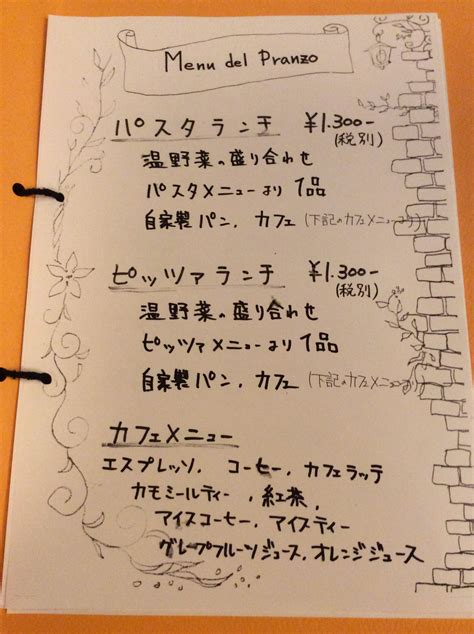 Menu del Pranzo
パスタランチ ¥1.300-
(税別)
温野菜の盛り合わせ
パスタメニューより 1品
自家製パン、カフェ (下記のカフェメニューより)
ピッツァランチ ¥1.300-
(税別)
温野菜の盛り合わせ
ピッツァメニューより 1品
自家製パン、カフェ (下記のカフェメニューより)
カフェメニュー
エスプレッソ、コーヒー、カフェラッテ
カモミールティー、紅茶、
アイスコーヒー、アイスティー
グレープフルーツジュース、オレンジジュース